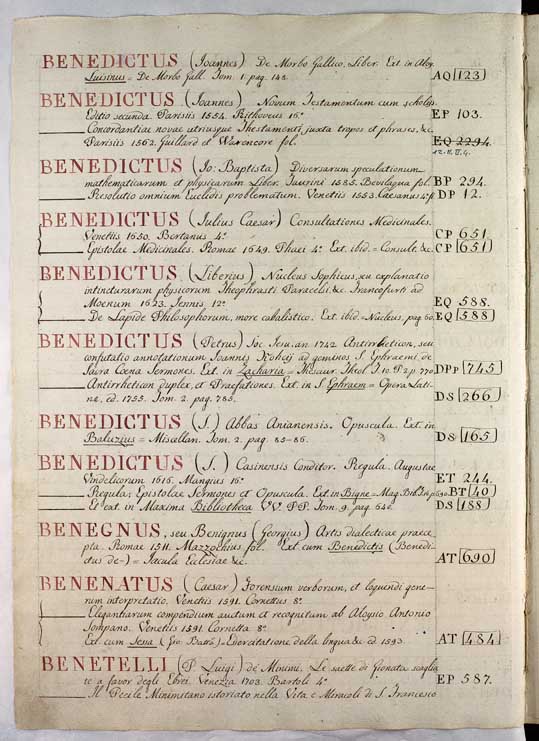 BENEDICTUS (Joannes) De Morbo Gallico, Liber. Ext. in Aloy.
Luisinus = De Morbo Gall. Tom. 1. pag. 148. AQ [123]
BENEDICTUS (Joannes) Novum Testamentum cum scholys.
Editio secunda. Parisiis 1554. 16° EP 103.
Concordantiae novae utriusque Thestamenti, juxta tropos et phrases, &c.
Parisiis 1562. Guillard et fol. EQ 2294.
12. II. II. 4.
BENEDICTUS (Jo: Baptista) Diversarum speculationum
mathematicarum et physicarum Liber. Taurini 1585. Bevilaqua fol. BP 294.
Resolutio omnium Euclidis problematum. Venetiis 1553. Caesanus 4° DP 12.
BENEDICTUS (Julius Caesar) Consultationes Medicinales.
Venetiis 1650. Bertanus 4° CP 651.
Epistolae Medicinales. Romae 1649. Phaei 4° Ext. ibid. = Consult. &c. CP [651]
BENEDICTUS (Liberius) Nucleus Sophicus, seu explanatio
in tincturam physicorum Theophrasti Paracelsi &c. Francofurti ad
Moenum 1623. Jennis, 12° EQ 588.
De Lapide Philosophorum, more cabalistico. Ext. ibid = Nucleus, pag. 60. EQ [588]
BENEDICTUS (Petrus) Soc. Jesu, an 1742 Antirrheticon, seu
confutatio annotationum Joannis ad geminos S. Ephraemi de
Sacra Coena Sermones. Ext. in Zacharia = Thesaur. Theol. T. 10. P. 2. p. 770 DPp [745]
Antirrheticon duplex, et Praefationes. Ext. in S. Ephraem = Opera Lati-
ne, ed. 1755. Tom. 2. pag. 785. DS [266]
BENEDICTUS (S.) Abbas Anianensis. Opuscula. Ext. in
Baluzius = Miscellan. Tom. 2. pag. 85-86. DS [165]
BENEDICTUS (S.) Casinensis Conditor. Regula. Augustae
Vindelicorum 1616. Mangius 16° ET 244.
Regula; Epistolae Sermones et Opuscula. Ext. in Bigne = Mag. Bib. 690 BT [40]
Et ext. in Maxima Bibliotheca VV. PP. Tom. 9. pag. 640. DS [188]
BENEGNUS, seu Benignus (Georgius) Artis dialecticae praece-
pta. Romae 1511. Mazzochius fol. Ext. cum Benedictis (Benedi-
ctus de-) = Jacula Eclesiae &c. AT [690]
BENENATUS (Caesar) Forensium verborum, et loquendi gene-
rum interpretatio. Venetiis 1591. Cornettus 8°
Elegantiarum compendium auctum et recognitum ab Aloysio Antonio
Sompano. Venetiis 1591. Cornetta 8°
Ext. cum Sesa (Gio: Batta) = Exercitatione della lingua &c. ed 1593. AT [484]
BENETELLI (P. Luigi) de' Minimi. Le saette di Gionata scaglia
te a favor degli Ebrei. Venezia 1703. Bartoli 4° EP 587.
Il Pecile Minimitano istoriato nella Vita e Miracoli di S. Francesco